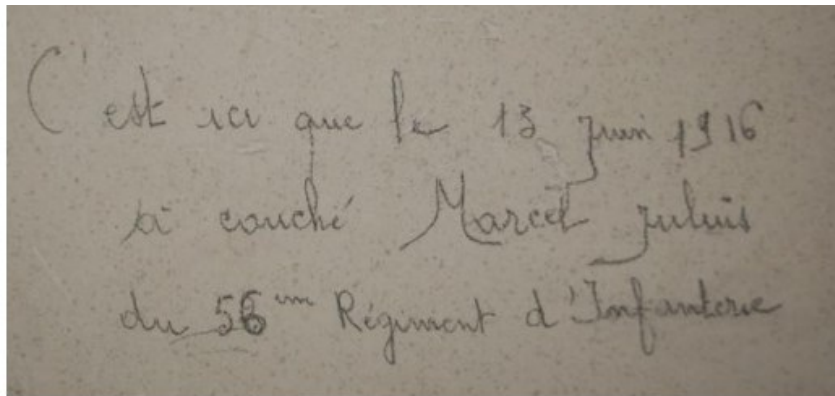 C'est ici que le 13 juin 1916
a couché Marcel
du 56ème Régiment d'Infanterie